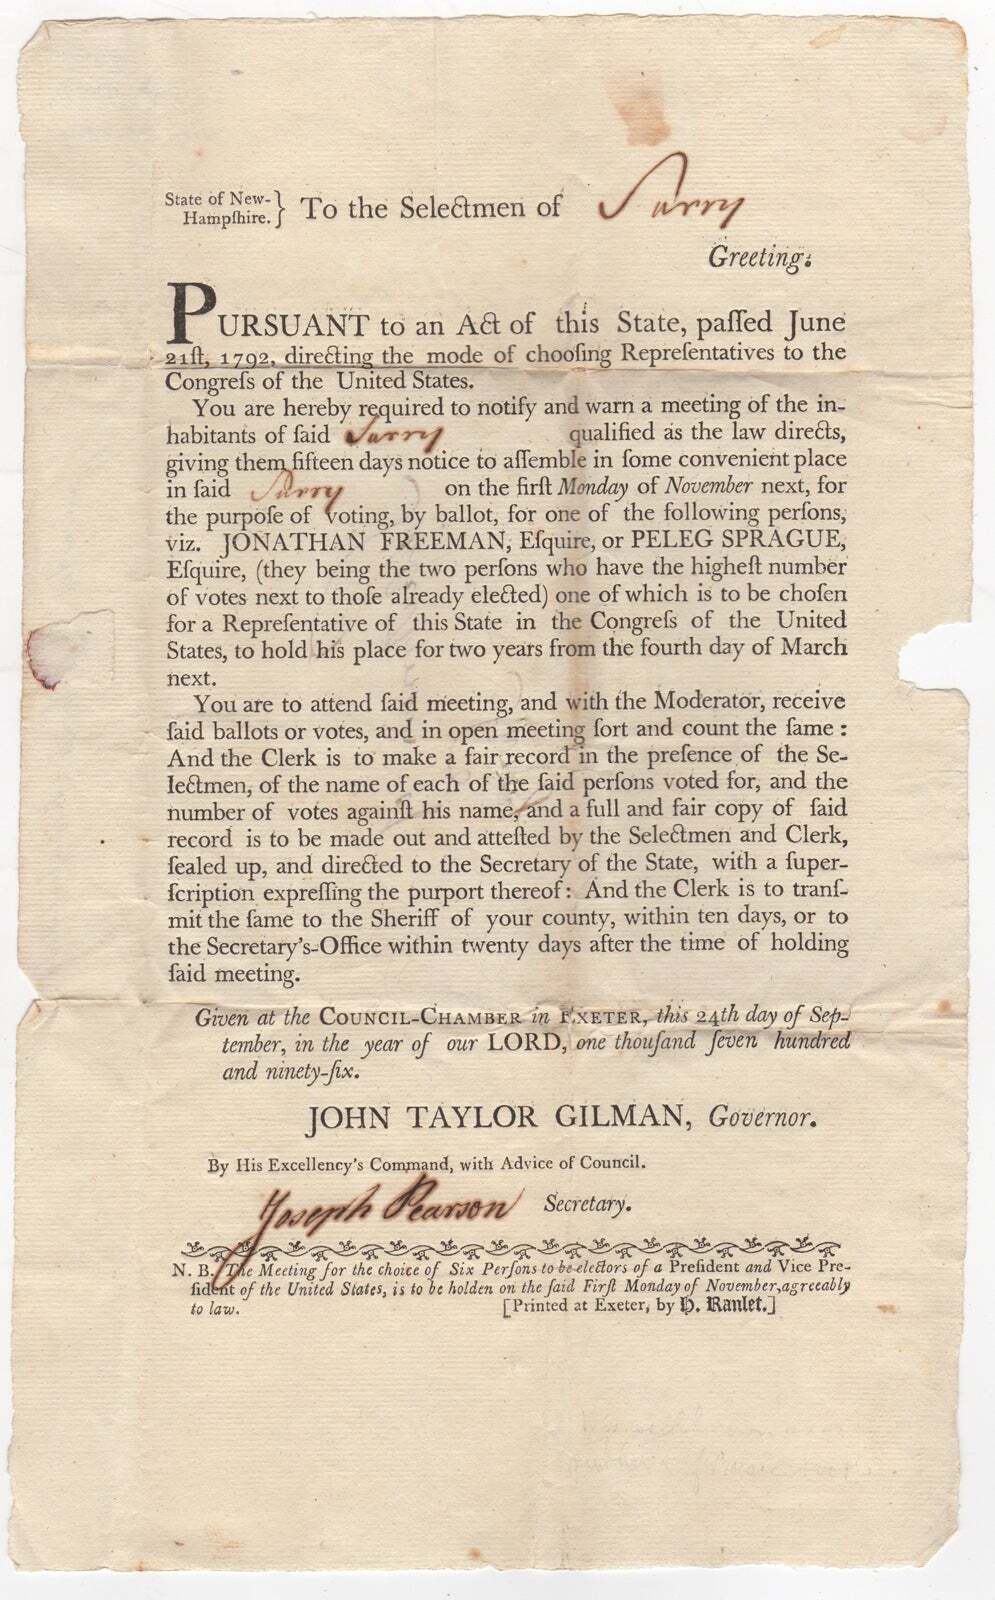 State of New-
Hampſhire. } To the Selectmen of Surry
Greeting.
PURSUANT to an Act of this State, paſſed June
21ſt, 1792, directing the mode of chooſing Repreſentatives to the
Congreſs of the United States.
You are hereby required to notify and warn a meeting of the in-
habitants of ſaid Surry qualified as the law directs,
giving them fifteen days notice to aſſemble in ſome convenient place
in ſaid Surry on the firſt Monday of November next, for
the purpoſe of voting, by ballot, for one of the following perſons,
viz. JONATHAN FREEMAN, Eſquire, or PELEG SPRAGUE,
Eſquire, (they being the two perſons who have the higheſt number
of votes next to thoſe already elected) one of which is to be choſen
for a Repreſentative of this State in the Congreſs of the United
States, to hold his place for two years from the fourth day of March
next.
You are to attend ſaid meeting, and with the Moderator, receive
ſaid ballots or votes, and in open meeting ſort and count the ſame :
And the Clerk is to make a fair record in the preſence of the Se-
lectmen, of the name of each of the ſaid perſons voted for, and the
number of votes againſt his name, and a full and fair copy of ſaid
record is to be made out and atteſted by the Selectmen and Clerk,
ſealed up, and directed to the Secretary of the State, with a ſuper-
ſcription expreſſing the purport thereof : And the Clerk is to tranſ-
mit the ſame to the Sheriff of your county, within ten days, or to
the Secretary's-Office within twenty days after the time of holding
ſaid meeting.
Given at the COUNCIL-CHAMBER in EXETER, this 24th day of Sep-
tember, in the year of our LORD, one thouſand ſeven hundred
and ninety-ſix.
JOHN TAYLOR GILMAN, Governor.
By His Excellency's Command, with Advice of Council.
Joseph Pearson Secretary.
N. B. The Meeting for the choice of Six Perſons to be electors of a Preſident and Vice Pre-
ſident of the United States, is to be holden on the ſaid Firſt Monday of November, agreeably
to law. [Printed at Exeter, by H. Ranlet.]